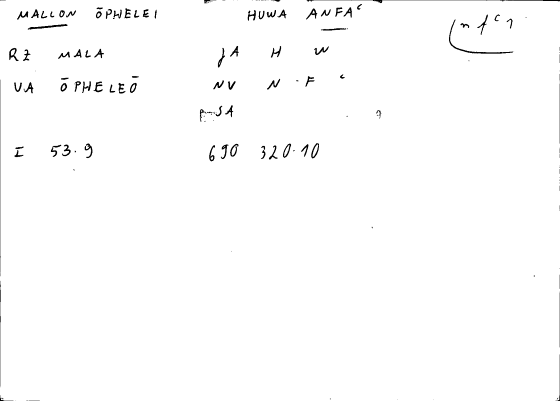 MALLON ŌPHELEI HUWA ANFAᶜ (nfᶜ1
RZ MALA JA H W
VA ŌPHELEŌ NV N·Fᶜ
SA
I 53.9 690 320.10